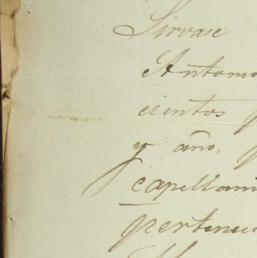 Sirvase
Antonio
cientos
y año,
capellani
pertenec